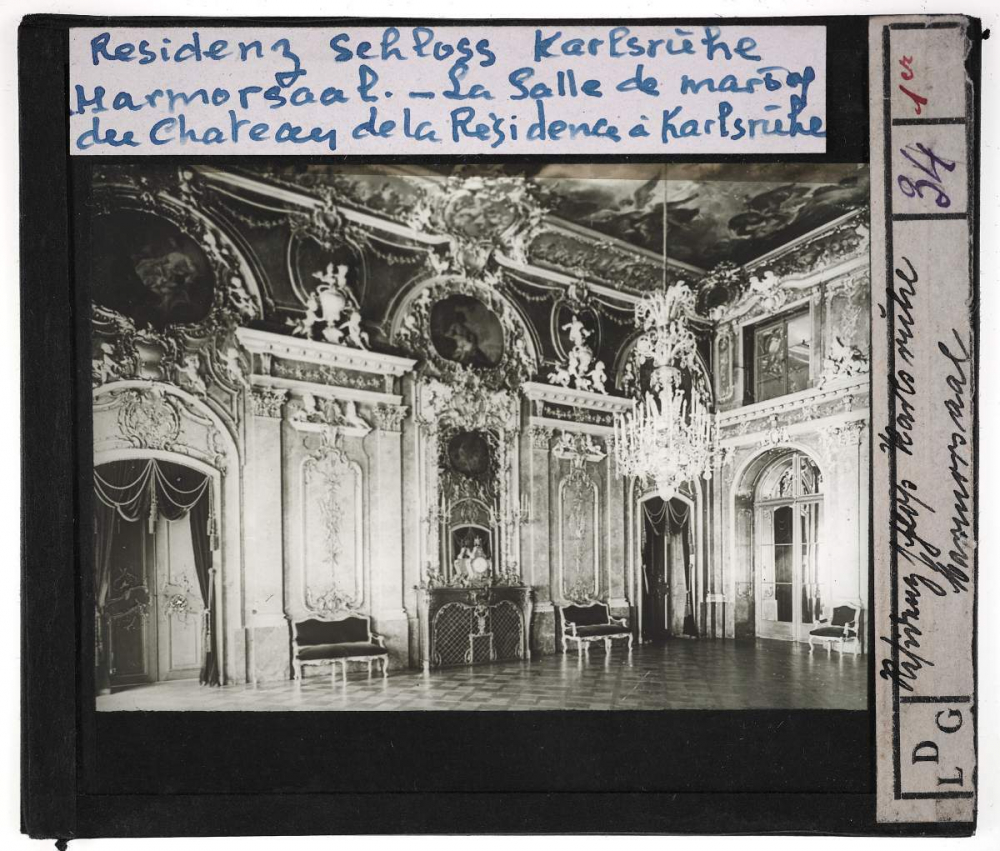 Residenz Schloss Karlsrühe
Marmorsaal. — La Salle de marbre
du Chateau de la Résidence à Karlsrühe
1er
34
Residenz Schloß Karlsruhe
Marmorsaal
L D G